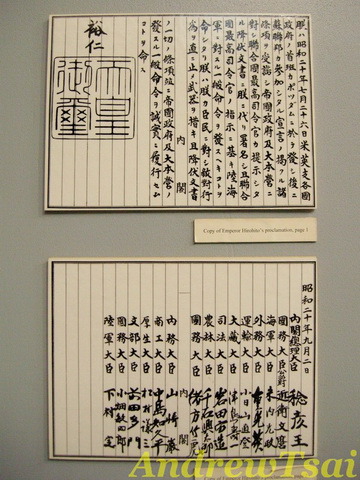 朕ハ昭和二十年七月二十六日米英支各國
政府ノ首班カポツダムニ於テ發シ後ニ
蘇聯邦カ參加シタル宣言ノ掲クル諸
條項ヲ受諾シ帝國政府及大本營ニ
對シ聯合國最高司令官カ提示シタ
ル降伏文書ニ朕ニ代リ署名シ且聯合
國最高司令官ノ指示ニ基キ陸海
軍ニ對スル一般命令ヲ發スヘキコトヲ
命シタリ朕ハ朕カ臣民ニ對シ敵對行
爲ヲ直ニ止メ武器ヲ措キ且降伏文書
內閣
ノ一切ノ條項竝ニ帝國政府及大本營ノ
發スル一般命令ヲ誠實ニ履行セム
コトヲ命ス
裕仁
天皇御璽
Copy of Emperor Hirohito's proclamation, page 1
昭和二十年九月二日
內閣總理大臣 稔彥王
國務大臣公爵 近衞文麿
海軍大臣 米內光政
外務大臣 重光葵
運輸大臣 小日山直登
大藏大臣 津島壽一
司法大臣 岩田宙造
農林大臣 千石興太郎
國務大臣 緒方竹虎
內閣
內務大臣 山崎巖
商工大臣 中島知久平
厚生大臣 松村謙三
文部大臣 前田多門
國務大臣 小畑敏四郎
陸軍大臣 下村定
AndrewTsai